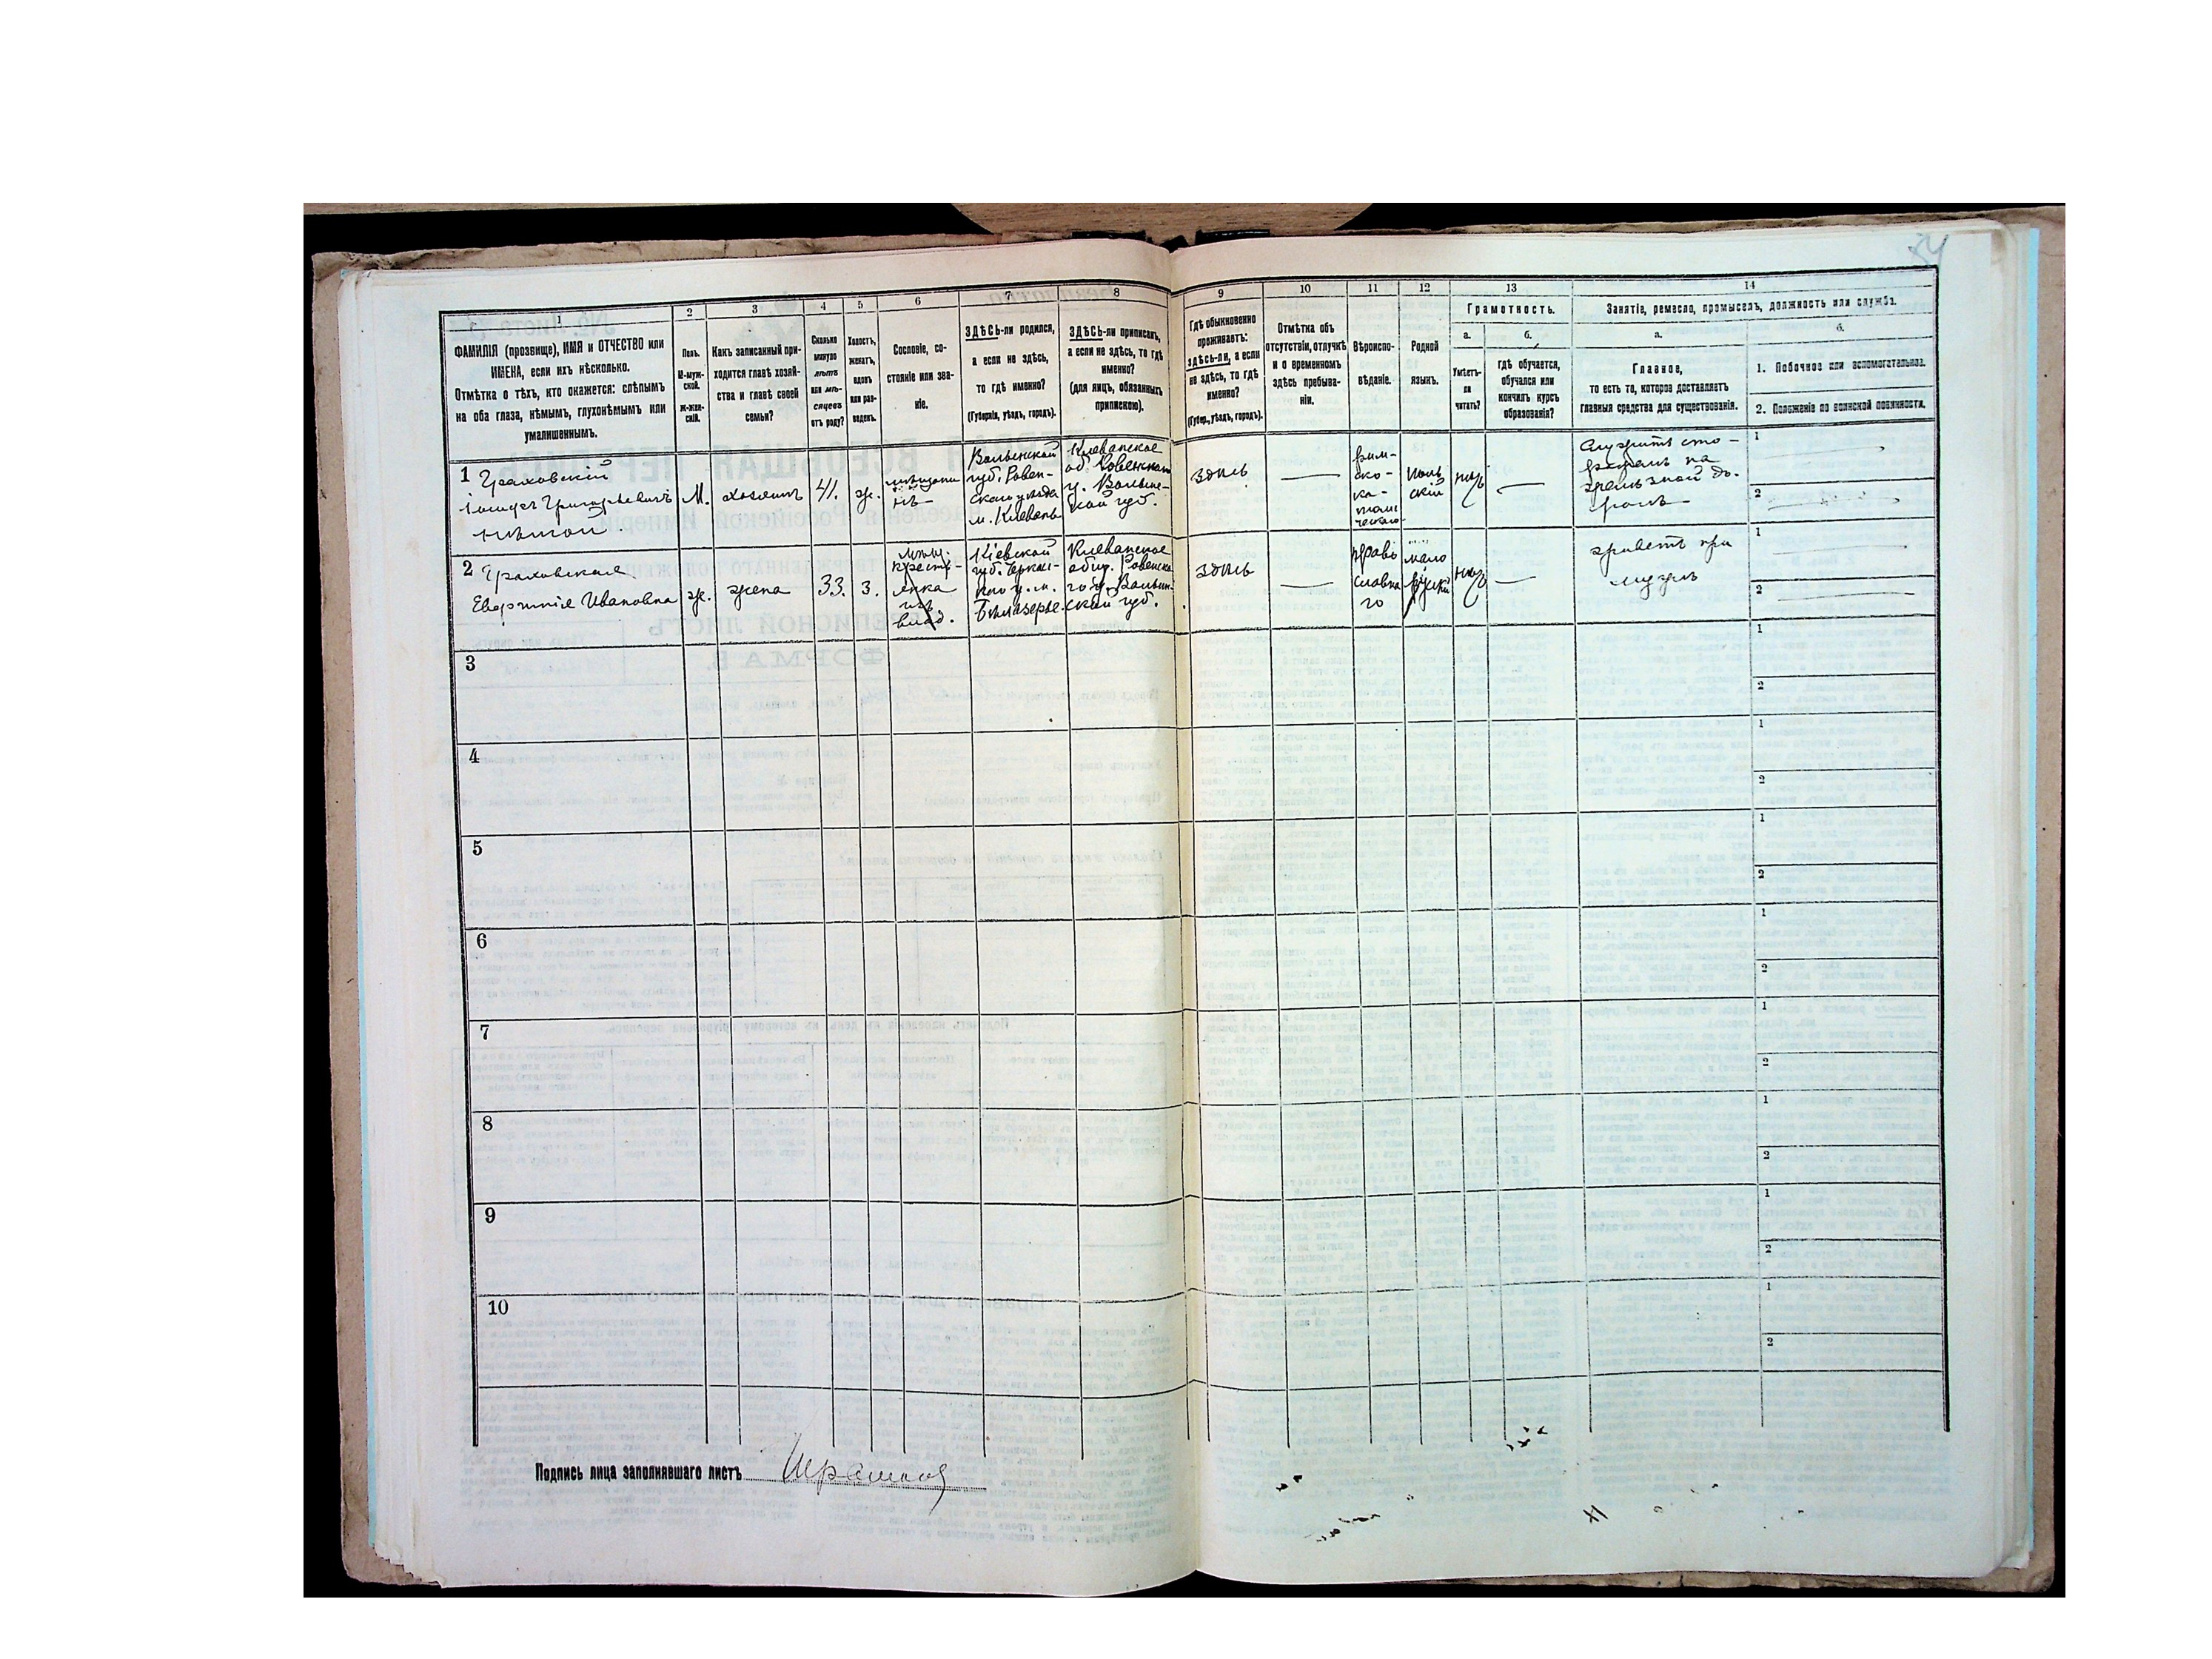 54
1 2 3 4 5 6 7 8 9 10 11 12 13 14
ФАМИЛІЯ (прозвище), ИМЯ и ОТЧЕСТВО или
ИМЕНА, если ихъ нѣсколько.
Отмѣтка о тѣхъ, кто окажется: слѣпымъ
на оба глаза, нѣмымъ, глухонѣмымъ или
умалишеннымъ.
Полъ.
М-муж-
ской.
Ж-жен-
скій.
Какъ записанный при-
ходится главѣ хозяй-
ства и главѣ своей
семьи?
Сколько
минуло
лѣтъ
или мѣ-
сяцевъ
отъ роду?
Холостъ,
женатъ,
вдовъ
или раз-
веденъ.
Сословіе, со-
стояніе или зва-
ніе.
ЗДѢСЬ-ли родился,
а если не здѣсь,
то гдѣ именно?
(Губернія, уѣздъ, городъ).
ЗДѢСЬ-ли приписанъ,
а если не здѣсь, то гдѣ
именно?
(для лицъ, обязанныхъ
припискою).
Гдѣ обыкновенно
проживаетъ:
здѣсь-ли, а если
не здѣсь, то гдѣ
именно?
(Губер., уѣздъ, городъ).
Отмѣтка объ
отсутствіи, отлучкѣ
и о временномъ
здѣсь пребыва-
ніи.
Вѣроиспо-
вѣданіе.
Родной
языкъ.
Грамотность.
а.
Умѣетъ-
ли
читать?
б.
гдѣ обучается,
обучался или
кончилъ курсъ
образованія?
Занятіе, ремесло, промыселъ, должность или служба.
а.
Главное,
то есть то, которое доставляетъ
главныя средства для существованія.
б.
1. Побочное или вспомогательное.
2. Положеніе по воинской повинности.
1 Граховскій
Іосифъ Григорьевичъ
нѣмой.
М.
хозяинъ
41.
ж.
мѣщани
нъ
Волынской
губ. Ровен-
скаго уѣзда
м. Клевань
Клеванское
об. Ровенскаго
у. Волынс-
кой губ.
здѣсь
рим-
ско-
ка-
толи
ческаго
поль
скій
нѣтъ
Служитъ сто-
рожемъ на
желѣзной до-
рогѣ
1
2
2 Граховская
Евфтинія Ивановна
ж.
жена
33.
з.
мѣщ.
крестъ-
янка
изъ
влад.
Кіевской
губ. Черкас-
каго у. м.
Бѣлазерье.
Клеванское
общ. Ровенска
го у. Волын-
ской губ.
здѣсь
право
славна
го
мало
руский
нѣтъ
живетъ при
мужѣ
1
2
3
1
2
4
1
2
5
1
2
6
1
2
7
1
2
8
1
2
9
1
2
10
1
2
Подпись лица заполнявшаго листъ